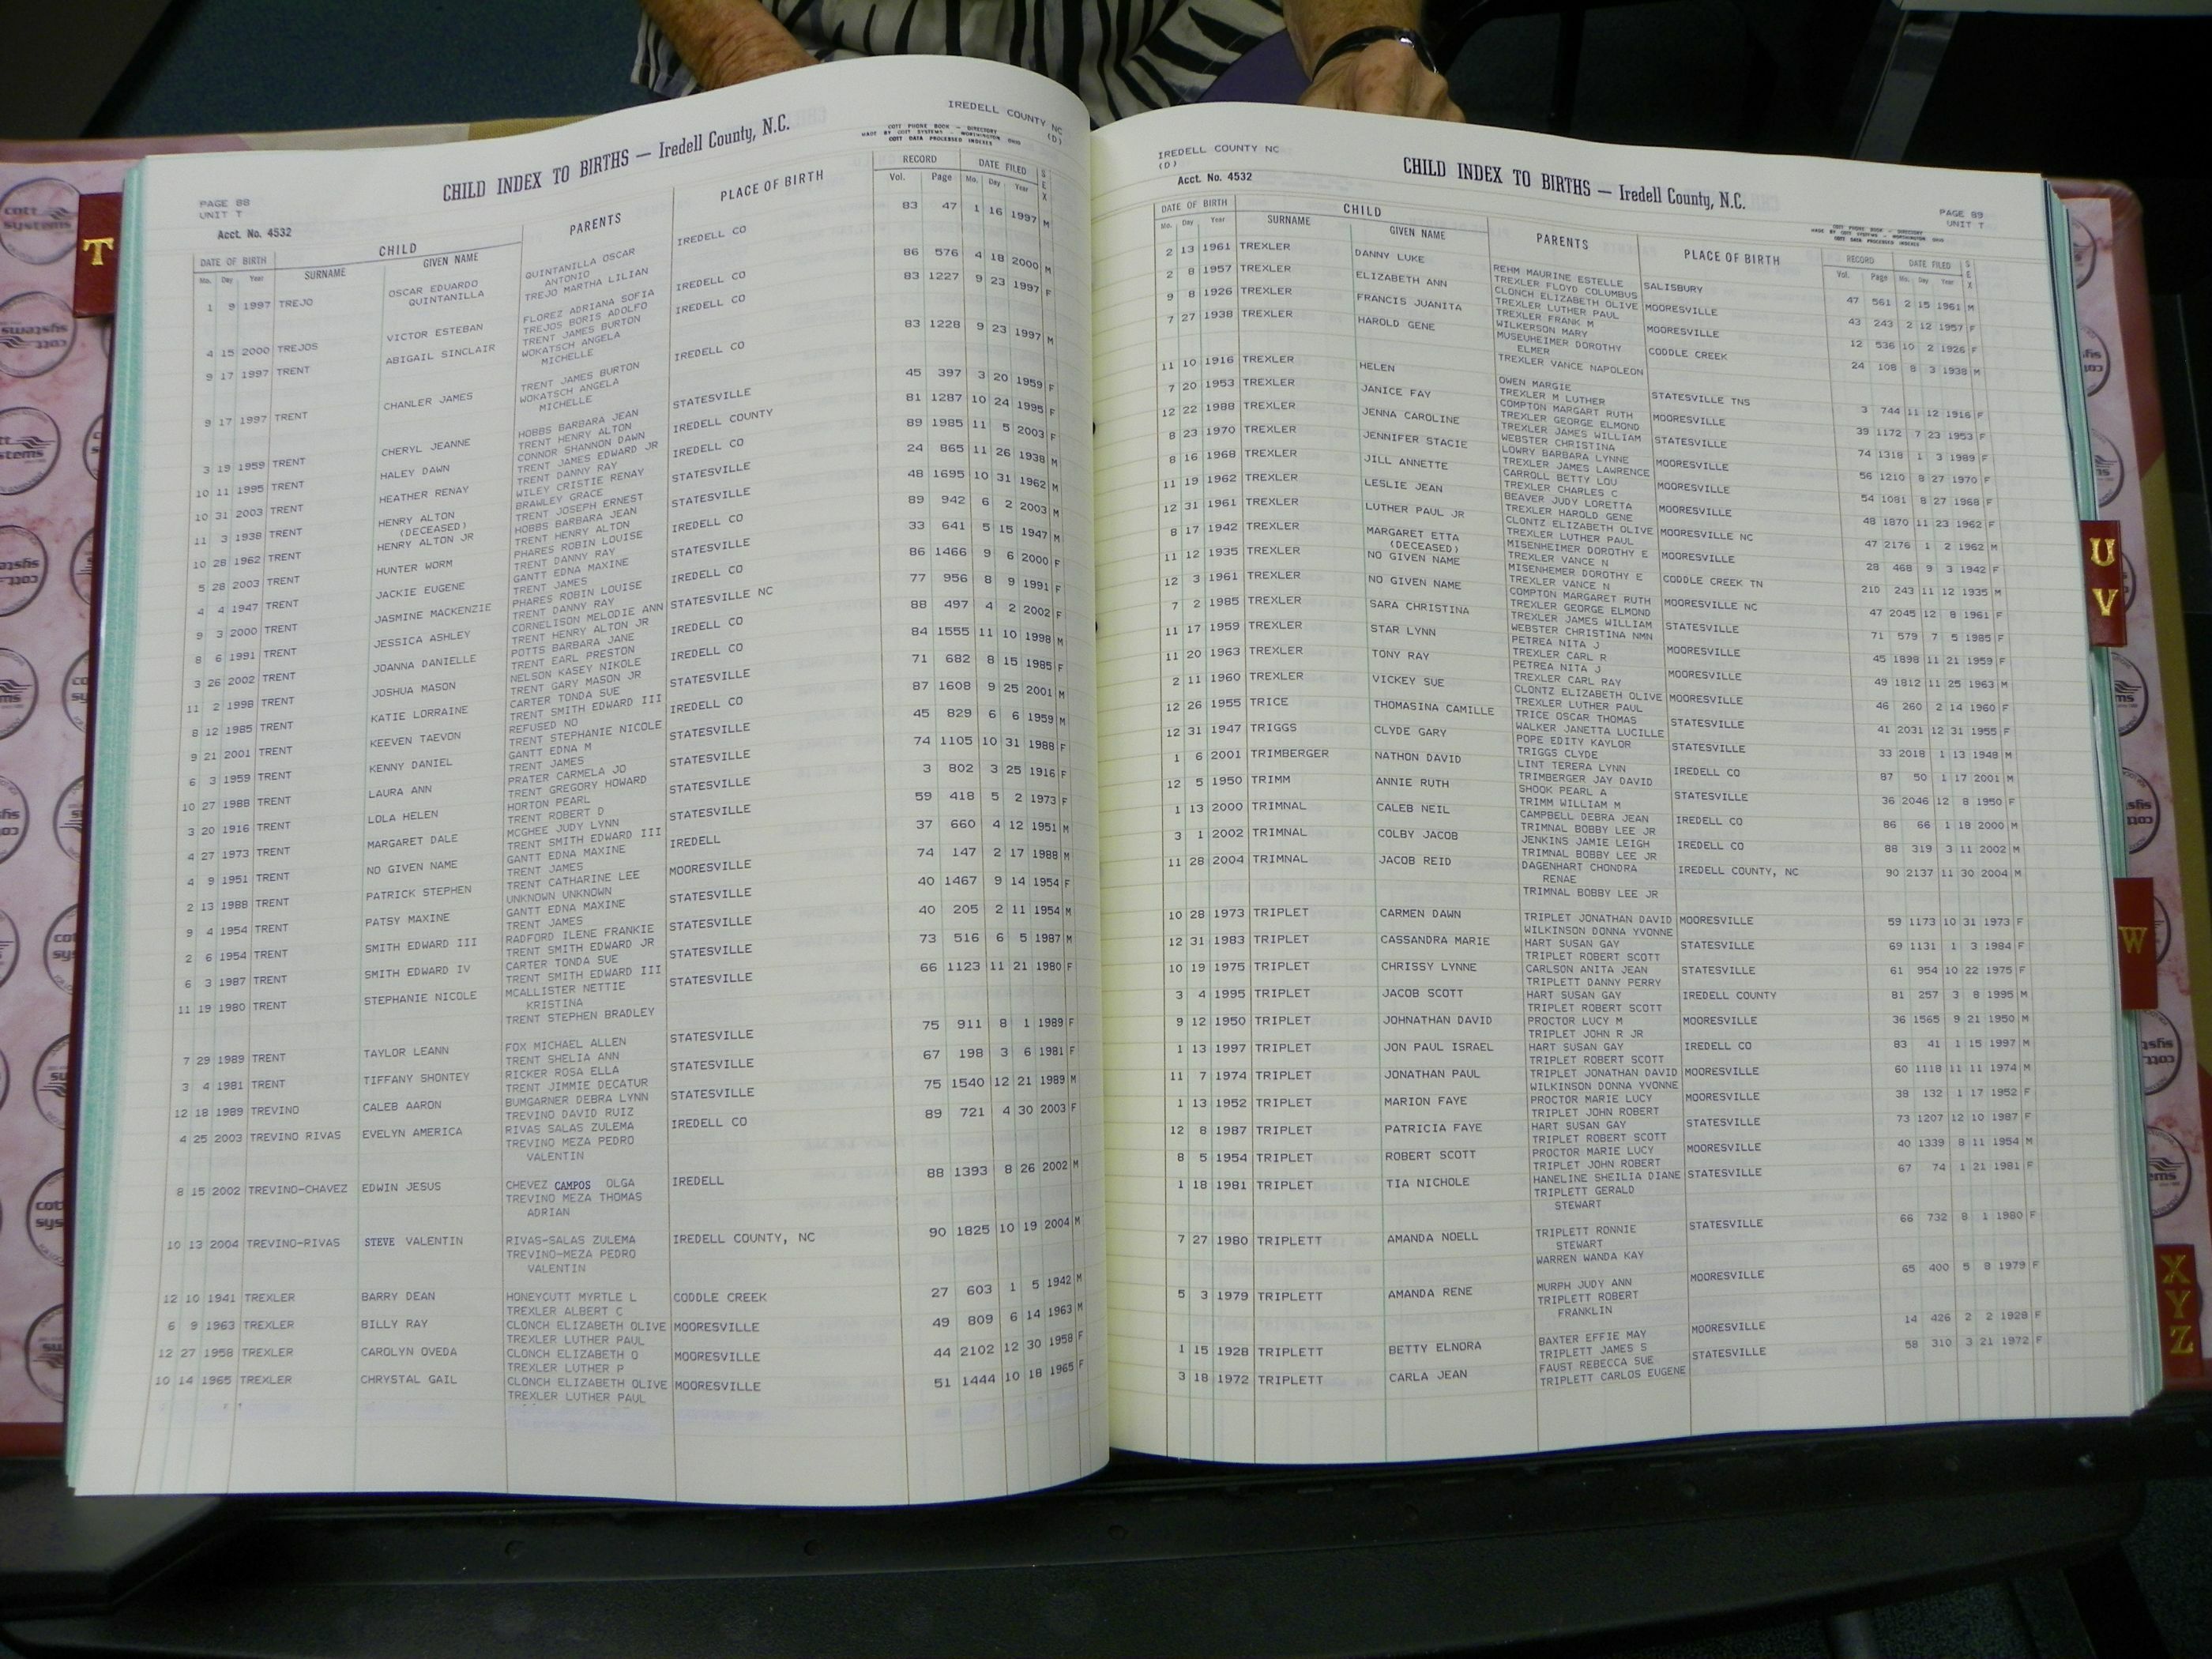 IREDELL COUNTY NC
(D)
COTT PHONE BOOK — DIRECTORY
MADE BY COTT SYSTEMS — WORTHINGTON OHIO
COTT DATA PROCESSED INDEXES
CHILD INDEX TO BIRTHS — Iredell County, N.C.
PAGE 88
UNIT T
Acct. No. 4532
DATE OF BIRTH CHILD PARENTS PLACE OF BIRTH RECORD DATE FILED SEX
Mo. Day Year SURNAME GIVEN NAME Vol. Page Mo. Day Year
1 9 1997 TREJO OSCAR EDUARDO QUINTANILLA OSCAR IREDELL CO 83 47 1 16 1997 M
QUINTANILLA ANTONIO
TREJO MARTHA LILIAN
4 15 2000 TREJOS VICTOR ESTEBAN FLOREZ ADRIANA SOFIA IREDELL CO 86 576 4 18 2000 M
TREJOS BORIS ADOLFO
9 17 1997 TRENT ABIGAIL SINCLAIR TRENT JAMES BURTON IREDELL CO 83 1227 9 23 1997 F
WOKATSCH ANGELA
MICHELLE
9 17 1997 TRENT CHANLER JAMES TRENT JAMES BURTON IREDELL CO 83 1228 9 23 1997 M
WOKATSCH ANGELA
MICHELLE
3 19 1959 TRENT CHERYL JEANNE HOBBS BARBARA JEAN STATESVILLE 45 397 3 20 1959 F
TRENT HENRY ALTON
10 11 1995 TRENT HALEY DAWN CONNOR SHANNON DAWN IREDELL COUNTY 81 1287 10 24 1995 F
TRENT JAMES EDWARD JR
10 31 2003 TRENT HEATHER RENAY TRENT DANNY RAY IREDELL CO 89 1985 11 5 2003 F
WILEY CRISTIE RENAY
11 3 1938 TRENT HENRY ALTON BRAWLEY GRACE STATESVILLE 24 865 11 26 1938 M
(DECEASED) TRENT JOSEPH ERNEST
10 28 1962 TRENT HENRY ALTON JR HOBBS BARBARA JEAN STATESVILLE 48 1695 10 31 1962 M
TRENT HENRY ALTON
5 28 2003 TRENT HUNTER WORM PHARES ROBIN LOUISE IREDELL CO 89 942 6 2 2003 M
TRENT DANNY RAY
4 4 1947 TRENT JACKIE EUGENE GANTT EDNA MAXINE STATESVILLE 33 641 5 15 1947 M
TRENT JAMES
9 3 2000 TRENT JASMINE MACKENZIE PHARES ROBIN LOUISE IREDELL CO 86 1466 9 6 2000 F
TRENT DANNY RAY
8 6 1991 TRENT JESSICA ASHLEY CORNELISON MELODIE ANN STATESVILLE NC 77 956 8 9 1991 F
TRENT HENRY ALTON JR
3 26 2002 TRENT JOANNA DANIELLE POTTS BARBARA JANE IREDELL CO 88 497 4 2 2002 F
TRENT EARL PRESTON
11 2 1998 TRENT JOSHUA MASON NELSON KASEY NIKOLE IREDELL CO 84 1555 11 10 1998 M
TRENT GARY MASON JR
8 12 1985 TRENT KATIE LORRAINE CARTER TONDA SUE STATESVILLE 71 682 8 15 1985 F
TRENT SMITH EDWARD III
9 21 2001 TRENT KEEVEN TAEVON REFUSED NO IREDELL CO 87 1608 9 25 2001 M
TRENT STEPHANIE NICOLE
6 3 1959 TRENT KENNY DANIEL GANTT EDNA M STATESVILLE 45 829 6 6 1959 M
TRENT JAMES
10 27 1988 TRENT LAURA ANN PRATER CARMELA JO STATESVILLE 74 1105 10 31 1988 F
TRENT GREGORY HOWARD
3 20 1916 TRENT LOLA HELEN HORTON PEARL STATESVILLE 3 802 3 25 1916 F
TRENT ROBERT D
4 27 1973 TRENT MARGARET DALE MCGHEE JUDY LYNN STATESVILLE 59 418 5 2 1973 F
TRENT SMITH EDWARD III
4 9 1951 TRENT NO GIVEN NAME GANTT EDNA MAXINE IREDELL 37 660 4 12 1951 M
TRENT JAMES
2 13 1988 TRENT PATRICK STEPHEN TRENT CATHARINE LEE MOORESVILLE 74 147 2 17 1988 M
UNKNOWN UNKNOWN
9 4 1954 TRENT PATSY MAXINE GANTT EDNA MAXINE STATESVILLE 40 1467 9 14 1954 F
TRENT JAMES
2 6 1954 TRENT SMITH EDWARD III RADFORD ILENE FRANKIE STATESVILLE 40 205 2 11 1954 M
TRENT SMITH EDWARD JR
6 3 1987 TRENT SMITH EDWARD IV CARTER TONDA SUE STATESVILLE 73 516 6 5 1987 M
TRENT SMITH EDWARD III
11 19 1980 TRENT STEPHANIE NICOLE MCALLISTER NETTIE STATESVILLE 66 1123 11 21 1980 F
KRISTINA
TRENT STEPHEN BRADLEY
7 29 1989 TRENT TAYLOR LEANN FOX MICHAEL ALLEN STATESVILLE 75 911 8 1 1989 F
TRENT SHELIA ANN
3 4 1981 TRENT TIFFANY SHONTEY RICKER ROSA ELLA STATESVILLE 67 198 3 6 1981 F
TRENT JIMMIE DECATUR
12 18 1989 TREVINO CALEB AARON BUMGARNER DEBRA LYNN STATESVILLE 75 1540 12 21 1989 M
TREVINO DAVID RUIZ
4 25 2003 TREVINO RIVAS EVELYN AMERICA RIVAS SALAS ZULEMA IREDELL CO 89 721 4 30 2003 F
TREVINO MEZA PEDRO
VALENTIN
8 15 2002 TREVINO-CHAVEZ EDWIN JESUS CHEVEZ CAMPOS OLGA IREDELL 88 1393 8 26 2002 M
TREVINO MEZA THOMAS
ADRIAN
10 13 2004 TREVINO-RIVAS STEVE VALENTIN RIVAS-SALAS ZULEMA IREDELL COUNTY, NC 90 1825 10 19 2004 M
TREVINO-MEZA PEDRO
VALENTIN
12 10 1941 TREXLER BARRY DEAN HONEYCUTT MYRTLE L CODDLE CREEK 27 603 1 5 1942 M
TREXLER ALBERT C
6 9 1963 TREXLER BILLY RAY CLONCH ELIZABETH OLIVE MOORESVILLE 49 809 6 14 1963 M
TREXLER LUTHER PAUL
12 27 1958 TREXLER CAROLYN OVEDA CLONCH ELIZABETH O MOORESVILLE 44 2102 12 30 1958 F
TREXLER LUTHER P
10 14 1965 TREXLER CHRYSTAL GAIL CLONCH ELIZABETH OLIVE MOORESVILLE 51 1444 10 18 1965 F
TREXLER LUTHER PAUL
IREDELL COUNTY NC
(D)
Acct. No. 4532
CHILD INDEX TO BIRTHS — Iredell County, N.C.
PAGE 89
UNIT T
DATE OF BIRTH CHILD PARENTS PLACE OF BIRTH RECORD DATE FILED SEX
Mo. Day Year SURNAME GIVEN NAME Vol. Page Mo. Day Year
2 13 1961 TREXLER DANNY LUKE REHM MAURINE ESTELLE SALISBURY 47 561 2 15 1961 M
TREXLER FLOYD COLUMBUS
2 8 1957 TREXLER ELIZABETH ANN CLONCH ELIZABETH OLIVE MOORESVILLE 43 243 2 12 1957 F
TREXLER LUTHER PAUL
9 8 1926 TREXLER FRANCIS JUANITA TREXLER FRANK M MOORESVILLE 12 536 10 2 1926 F
WILKERSON MARY
7 27 1938 TREXLER HAROLD GENE MUSEUHEIMER DOROTHY CODDLE CREEK 24 108 8 3 1938 M
ELMER
TREXLER VANCE NAPOLEON
11 10 1916 TREXLER HELEN OWEN MARGIE STATESVILLE TNS 3 744 11 12 1916 F
TREXLER M LUTHER
7 20 1953 TREXLER JANICE FAY COMPTON MARGART RUTH MOORESVILLE 39 1172 7 23 1953 F
TREXLER GEORGE ELMOND
12 22 1988 TREXLER JENNA CAROLINE TREXLER JAMES WILLIAM STATESVILLE 74 1318 1 3 1989 F
WEBSTER CHRISTINA
8 23 1970 TREXLER JENNIFER STACIE LOWRY BARBARA LYNNE MOORESVILLE 56 1210 8 27 1970 F
TREXLER JAMES LAWRENCE
8 16 1968 TREXLER JILL ANNETTE CARROLL BETTY LOU MOORESVILLE 54 1081 8 27 1968 F
TREXLER CHARLES C
11 19 1962 TREXLER LESLIE JEAN BEAVER JUDY LORETTA MOORESVILLE 48 1870 11 23 1962 F
TREXLER HAROLD GENE
12 31 1961 TREXLER LUTHER PAUL JR CLONTZ ELIZABETH OLIVE MOORESVILLE NC 47 2176 1 2 1962 M
TREXLER LUTHER PAUL
8 17 1942 TREXLER MARGARET ETTA MISENHEIMER DOROTHY E MOORESVILLE 28 468 9 3 1942 F
(DECEASED) TREXLER VANCE N
11 12 1935 TREXLER NO GIVEN NAME MISENHEMER DOROTHY E CODDLE CREEK TN 210 243 11 12 1935 M
TREXLER VANCE N
12 3 1961 TREXLER NO GIVEN NAME COMPTON MARGARET RUTH MOORESVILLE NC 47 2045 12 8 1961 F
TREXLER GEORGE ELMOND
7 2 1985 TREXLER SARA CHRISTINA TREXLER JAMES WILLIAM STATESVILLE 71 579 7 5 1985 F
WEBSTER CHRISTINA NMN
11 17 1959 TREXLER STAR LYNN PETREA NITA J MOORESVILLE 45 1898 11 21 1959 F
TREXLER CARL R
11 20 1963 TREXLER TONY RAY PETREA NITA J MOORESVILLE 49 1812 11 25 1963 M
TREXLER CARL RAY
2 11 1960 TREXLER VICKEY SUE CLONTZ ELIZABETH OLIVE MOORESVILLE 46 260 2 14 1960 F
TREXLER LUTHER PAUL
12 26 1955 TRICE THOMASINA CAMILLE TRICE OSCAR THOMAS STATESVILLE 41 2031 12 31 1955 F
WALKER JANETTA LUCILLE
12 31 1947 TRIGGS CLYDE GARY POPE EDITY KAYLOR STATESVILLE 33 2018 1 13 1948 M
TRIGGS CLYDE
1 6 2001 TRIMBERGER NATHON DAVID LINT TERERA LYNN IREDELL CO 87 50 1 17 2001 M
TRIMBERGER JAY DAVID
12 5 1950 TRIMM ANNIE RUTH SHOOK PEARL A STATESVILLE 36 2046 12 8 1950 F
TRIMM WILLIAM M
1 13 2000 TRIMNAL CALEB NEIL CAMPBELL DEBRA JEAN IREDELL CO 86 66 1 18 2000 M
TRIMNAL BOBBY LEE JR
3 1 2002 TRIMNAL COLBY JACOB JENKINS JAMIE LEIGH IREDELL CO 88 319 3 11 2002 M
TRIMNAL BOBBY LEE JR
11 28 2004 TRIMNAL JACOB REID DAGENHART CHONDRA IREDELL COUNTY, NC 90 2137 11 30 2004 M
RENAE
TRIMNAL BOBBY LEE JR
10 28 1973 TRIPLET CARMEN DAWN TRIPLET JONATHAN DAVID MOORESVILLE 59 1173 10 31 1973 F
WILKINSON DONNA YVONNE
12 31 1983 TRIPLET CASSANDRA MARIE HART SUSAN GAY STATESVILLE 69 1131 1 3 1984 F
TRIPLET ROBERT SCOTT
10 19 1975 TRIPLET CHRISSY LYNNE CARLSON ANITA JEAN STATESVILLE 61 954 10 22 1975 F
TRIPLETT DANNY PERRY
3 4 1995 TRIPLET JACOB SCOTT HART SUSAN GAY IREDELL COUNTY 81 257 3 8 1995 M
TRIPLET ROBERT SCOTT
9 12 1950 TRIPLET JOHNATHAN DAVID PROCTOR LUCY M MOORESVILLE 36 1565 9 21 1950 M
TRIPLET JOHN R JR
1 13 1997 TRIPLET JON PAUL ISRAEL HART SUSAN GAY IREDELL CO 83 41 1 15 1997 M
TRIPLET ROBERT SCOTT
11 7 1974 TRIPLET JONATHAN PAUL TRIPLET JONATHAN DAVID MOORESVILLE 60 1118 11 11 1974 M
WILKINSON DONNA YVONNE
1 13 1952 TRIPLET MARION FAYE PROCTOR MARIE LUCY MOORESVILLE 38 132 1 17 1952 F
TRIPLET JOHN ROBERT
12 8 1987 TRIPLET PATRICIA FAYE HART SUSAN GAY STATESVILLE 73 1207 12 10 1987 F
TRIPLET ROBERT SCOTT
8 5 1954 TRIPLET ROBERT SCOTT PROCTOR MARIE LUCY MOORESVILLE 40 1339 8 11 1954 M
TRIPLET JOHN ROBERT
1 18 1981 TRIPLET TIA NICHOLE HANELINE SHEILIA DIANE STATESVILLE 67 74 1 21 1981 F
TRIPLETT GERALD
STEWART
7 27 1980 TRIPLETT AMANDA NOELL TRIPLETT RONNIE STATESVILLE 66 732 8 1 1980 F
STEWART
WARREN WANDA KAY
5 3 1979 TRIPLETT AMANDA RENE MURPH JUDY ANN MOORESVILLE 65 400 5 8 1979 F
TRIPLETT ROBERT
FRANKLIN
1 15 1928 TRIPLETT BETTY ELNORA BAXTER EFFIE MAY MOORESVILLE 14 426 2 2 1928 F
TRIPLETT JAMES S
3 18 1972 TRIPLETT CARLA JEAN FAUST REBECCA SUE STATESVILLE 58 310 3 21 1972 F
TRIPLETT CARLOS EUGENE
T
U
V
W
X
Y
Z
cott
systems